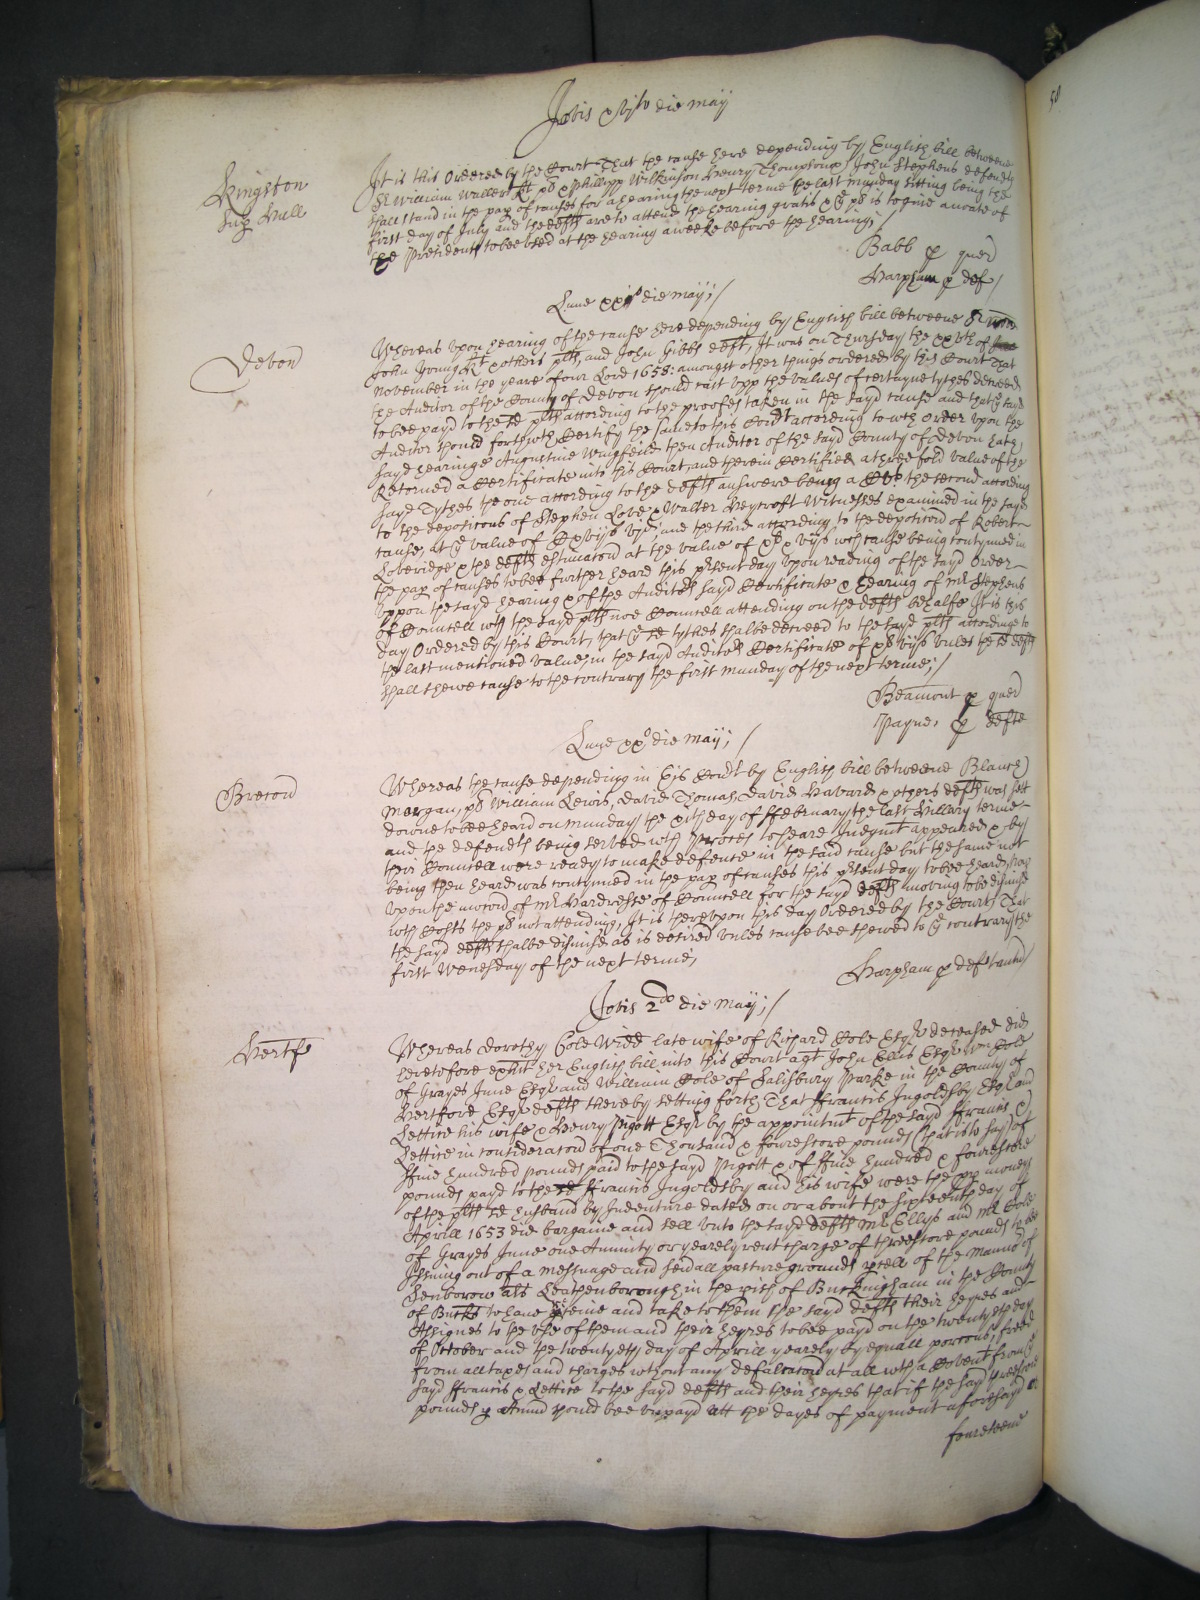 Jovis xvjto die maij
Kingston
sup Hull
It is this Ordered by the Court That the cause here depending by English bill betweene
Sr William Waller Kt plt & Phillipp Wilkinson Henry Thompson & John Stephens defendts
shall stand in the pap of causes for a hearing the next terme the last munday sitting being the
first day of July and the defts are to attend the hearing gratis & ye plt is to give a noate of
the Presidents to bee used at the hearing a weeke before the hearing;/
Babb p quer
Harpham p def/
Lune die maij;/
Devon
Whereas upon hearing of the cause here depending by English bill betweene Sr
John Yonng Kt & others plts, and John Gibbs deft, It was on Thursday the xxvth of
November in the yeare of our Lord 1658: amongst other things ordered by this Court That
the Auditor of the County of Devon should cast upp the values of certayne tythes decreed
to bee payd to the sd plts according to the proofes taken in the sayd cause and that ye sayd
Auditor should forthwth Certify the same to this Court according to wch Order upon the
sayd hearinge Augustine Wingfeild then Auditor of the sayd County of Devon hath
Returned a Certificate into this Court, and therein Certified a three fold value of the
sayd Tythes the one according to the defts answere being the second according
to the depositions of Stephen Love & Walter Heycroft Witnesses examined in the sayd
cause, at ye value of and the third according to the deposicon of Robert
Loveridge & the defts estimacon at the value of wch cause being contynued in
the pap of causes to bee further heard this psent day upon reading of the sayd Order
uppon the sayd hearing & of the Auditors sayd Certificate & hearing of Mr Stephens
of Councell wth the sayd plts noe Councell attending on the defts behalfe It is this
day Ordered by this Court, that ye sd tythes shalbe decreed to the sayd plts accordinge to
the last mentioned values in the sayd Auditors Certificate of unles the sd defts
shall shewe cause to the contrary the first munday of the next terme;/
Beamont p quer
Payne, p defte
Lune xxo die maij;/
Brecon
Whereas the cause depending in this Court by English bill betweene Blanch
Morgan, plt William Lewis, David Thomas, David Havard & others defts was sett
downe to bee heard on munday the xith day of ffebruary the last Hillary terme
and the defendts being served wth Proces to heare Judgmt appeared & by
their Councell were ready to make defence in the said cause but the same not
being then heard was contynued in the pap of causes this psent day to bee heard, Now
upon the mocon of Mr Hardresse of Councell for the sayd defts moving to be dismist
wth Costs the plt not attending, It is thereupon this day Ordered by the Court That
the sayd defts shalbe dismist as is desired unles cause bee shewed to ye contrary the
first Wensday of the next terme,
Harpham p def
Jovis 2do die maij;/
Hertf
Whereas Dorothy Cole Widd late wife of Richard Cole Esqr deceased did
heretofore exhit her English bill into this Court agt John Ellis Esqr Wm Cole
of Grayes Inne Esqr and William Cole of Salisbury Parke in the County of
Hertford Esqr defts thereby setting forth That ffrancis Ingoldsby Esqr and
Lettice his wife & Henry Pigott Esqr by the appointmt of the sayd ffrancis &
Lettice in consideracon of one Thousand & fourescore pounds (that is to say) of
ffive hundred pounds paid to the sayd Pigott & of ffive hundred & fourescore
pounds payd to the sd ffrancis Ingoldsby and his wife were the pp moneys
of the plts sd husband by Indenture dated on or about the sixteenth day of
Aprill 1653 did bargaine and sell unto the sayd defts Mr Ellys and Mr Cole
of Grayes Inne one Annuity or yearely rent charge of threescore pounds to bee
issuing out of a messuage and severall pasture grounds pcell of the Mannor of
Lenborow als Leathenborough in the pish of Buckingham in the County
of Bucks to have pceive and take to them the sayd defts their heyres and
Assignes to the use of them and their heyres to bee payd on the twentyeth day
of October and the twentyeth day of Aprill yearely by equall porcons, freed
from all taxes and charges wthout any defalcacon at all wth a Covent from ye
sayd ffrancis & Lettice to the sayd defts and their heyres that if the sayd threescore
pounds p Annu should bee unpayd att the dayes of payment aforesayd or
fourteene
50